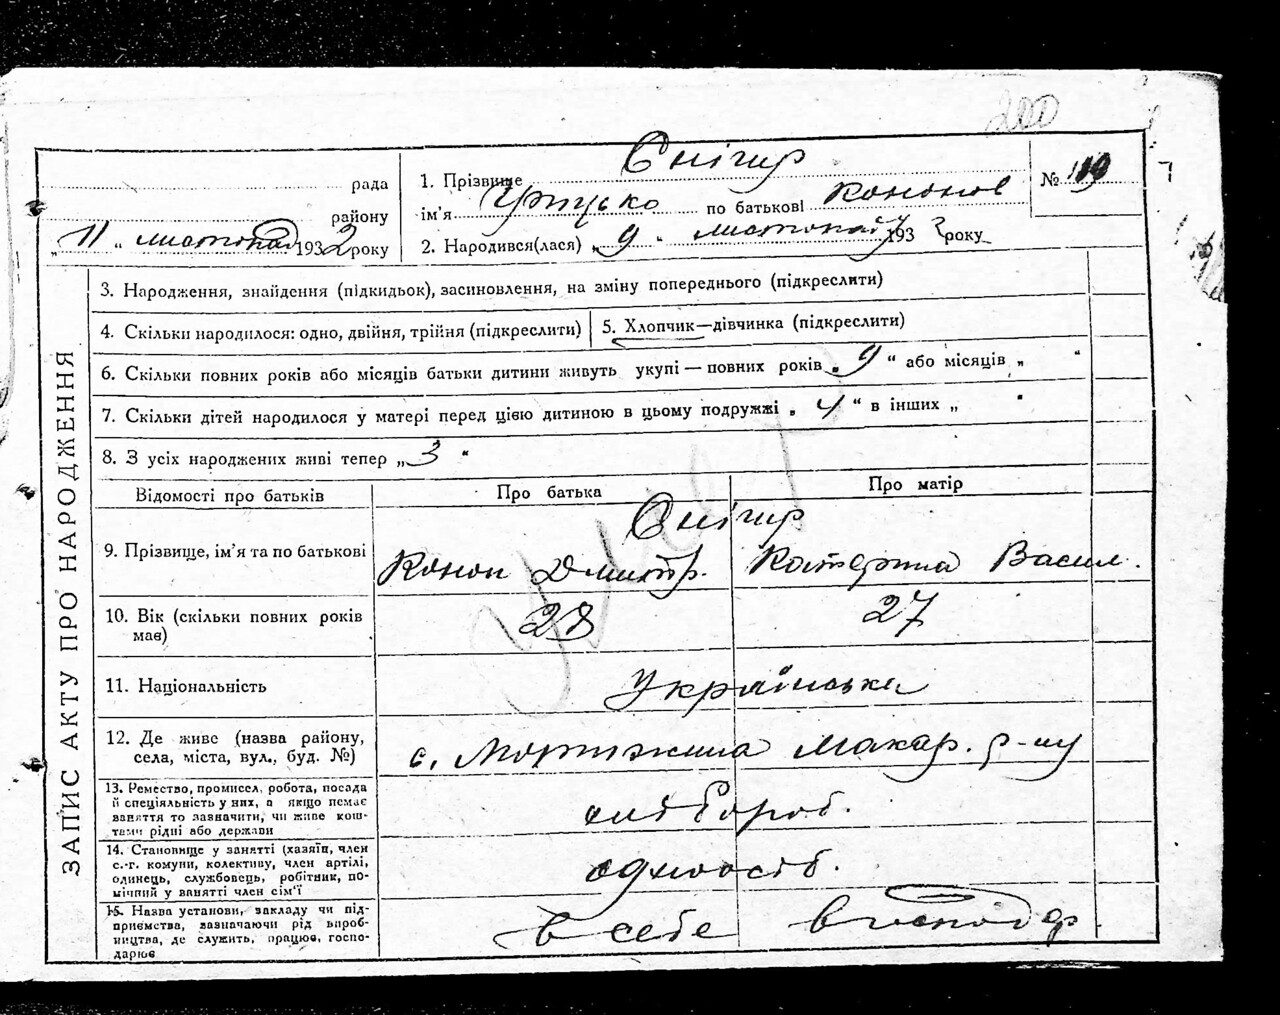 200
рада
району
„11“ листопад 1932 року
1. Прізвище Снігир
ім'я Грицько по батькові Кононов
2. Народився(лася) „9“ листопаду 1932 року
№ 119
ЗАПИС АКТУ ПРО НАРОДЖЕННЯ
3. Народження, знайдення (підкидьок), засиновлення, на зміну попереднього (підкреслити)
4. Скільки народилося: одно, двійня, трійня (підкреслити)
5. Хлопчик—дівчинка (підкреслити)
6. Скільки повних років або місяців батьки дитини живуть укупі — повних років „9“ або місяців „ “
7. Скільки дітей народилося у матері перед цією дитиною в цьому подружжі „4“ в інших „ “
8. З усіх народжених живі тепер „3“
Відомості про батьків
Про батька
Про матір
9. Прізвище, ім'я та по батькові
Снігир
Конон Дмитр.
Катерина Васил.
10. Вік (скільки повних років
має)
28
27
11. Національність
Українська
12. Де живе (назва району,
села, міста, вул., буд. №)
с. Мотижина Макар. р-ну
13. Ремество, промисел, робота, посада
й спеціяльність у них, а якщо немає
заняття то зазначити, чи живе кош-
тами рідні або держави
хлібороб.
14. Становище у занятті (хазяїн, член
с.-г. комуни, колективу, член артілі,
одинець, службовець, робітник, по-
мічний у занятті член сім'ї
одноосіб.
15. Назва установи, закладу чи під-
приємства, зазначаючи рід вироб-
ництва, де служить, працює, госпо-
дарює
в себе в господар